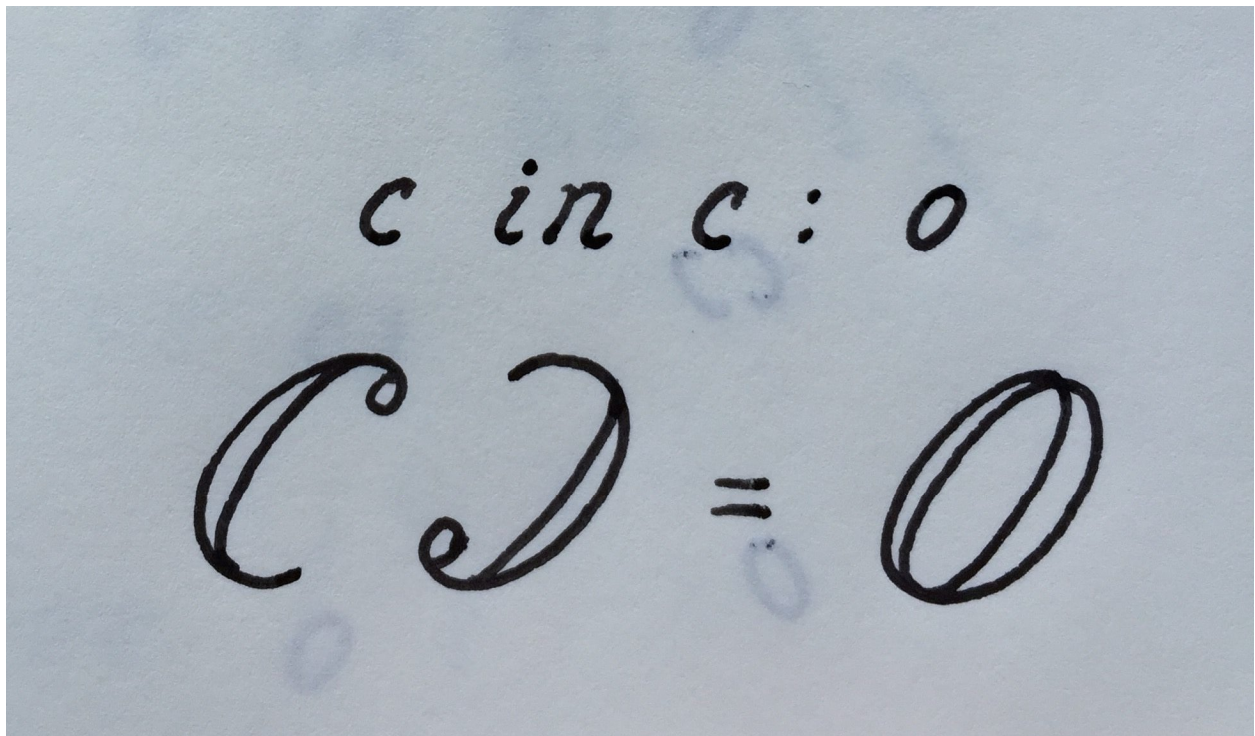 c in c : o
C Ɔ = O